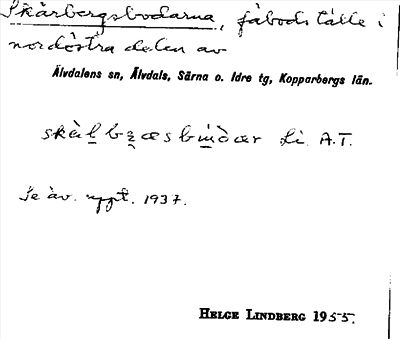 Skårbergsbodarna, fäbodställe i
nordöstra delen av
Älvdalens sn, Älvdals, Särna o. Idre tg, Kopparbergs län.
Li. A.T.
Se äv. uppt. 1937.
HELGE LINDBERG 1955.